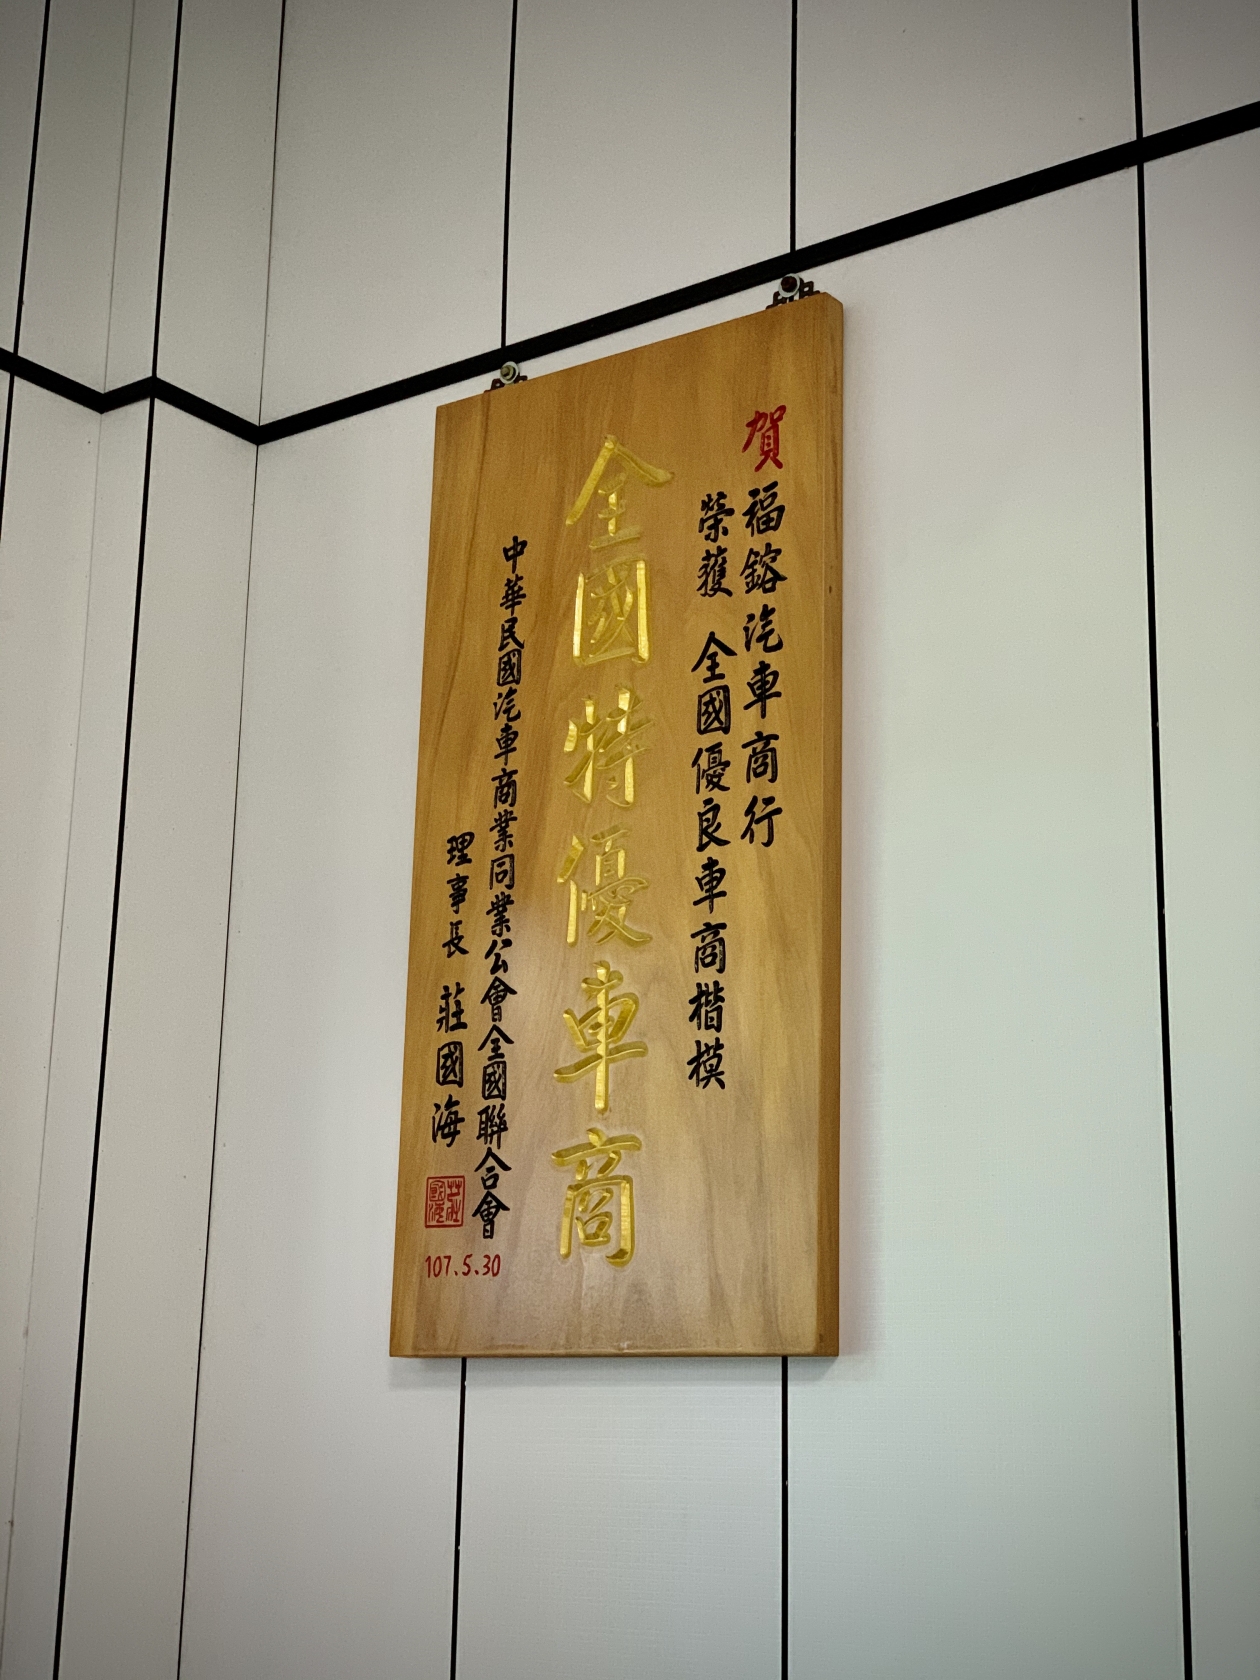 賀 福鎔汽車商行
榮獲 全國優良車商楷模
全國特優車商
中華民國汽車商業同業公會全國聯合會
理事長 莊國海
莊國海
107.5.30